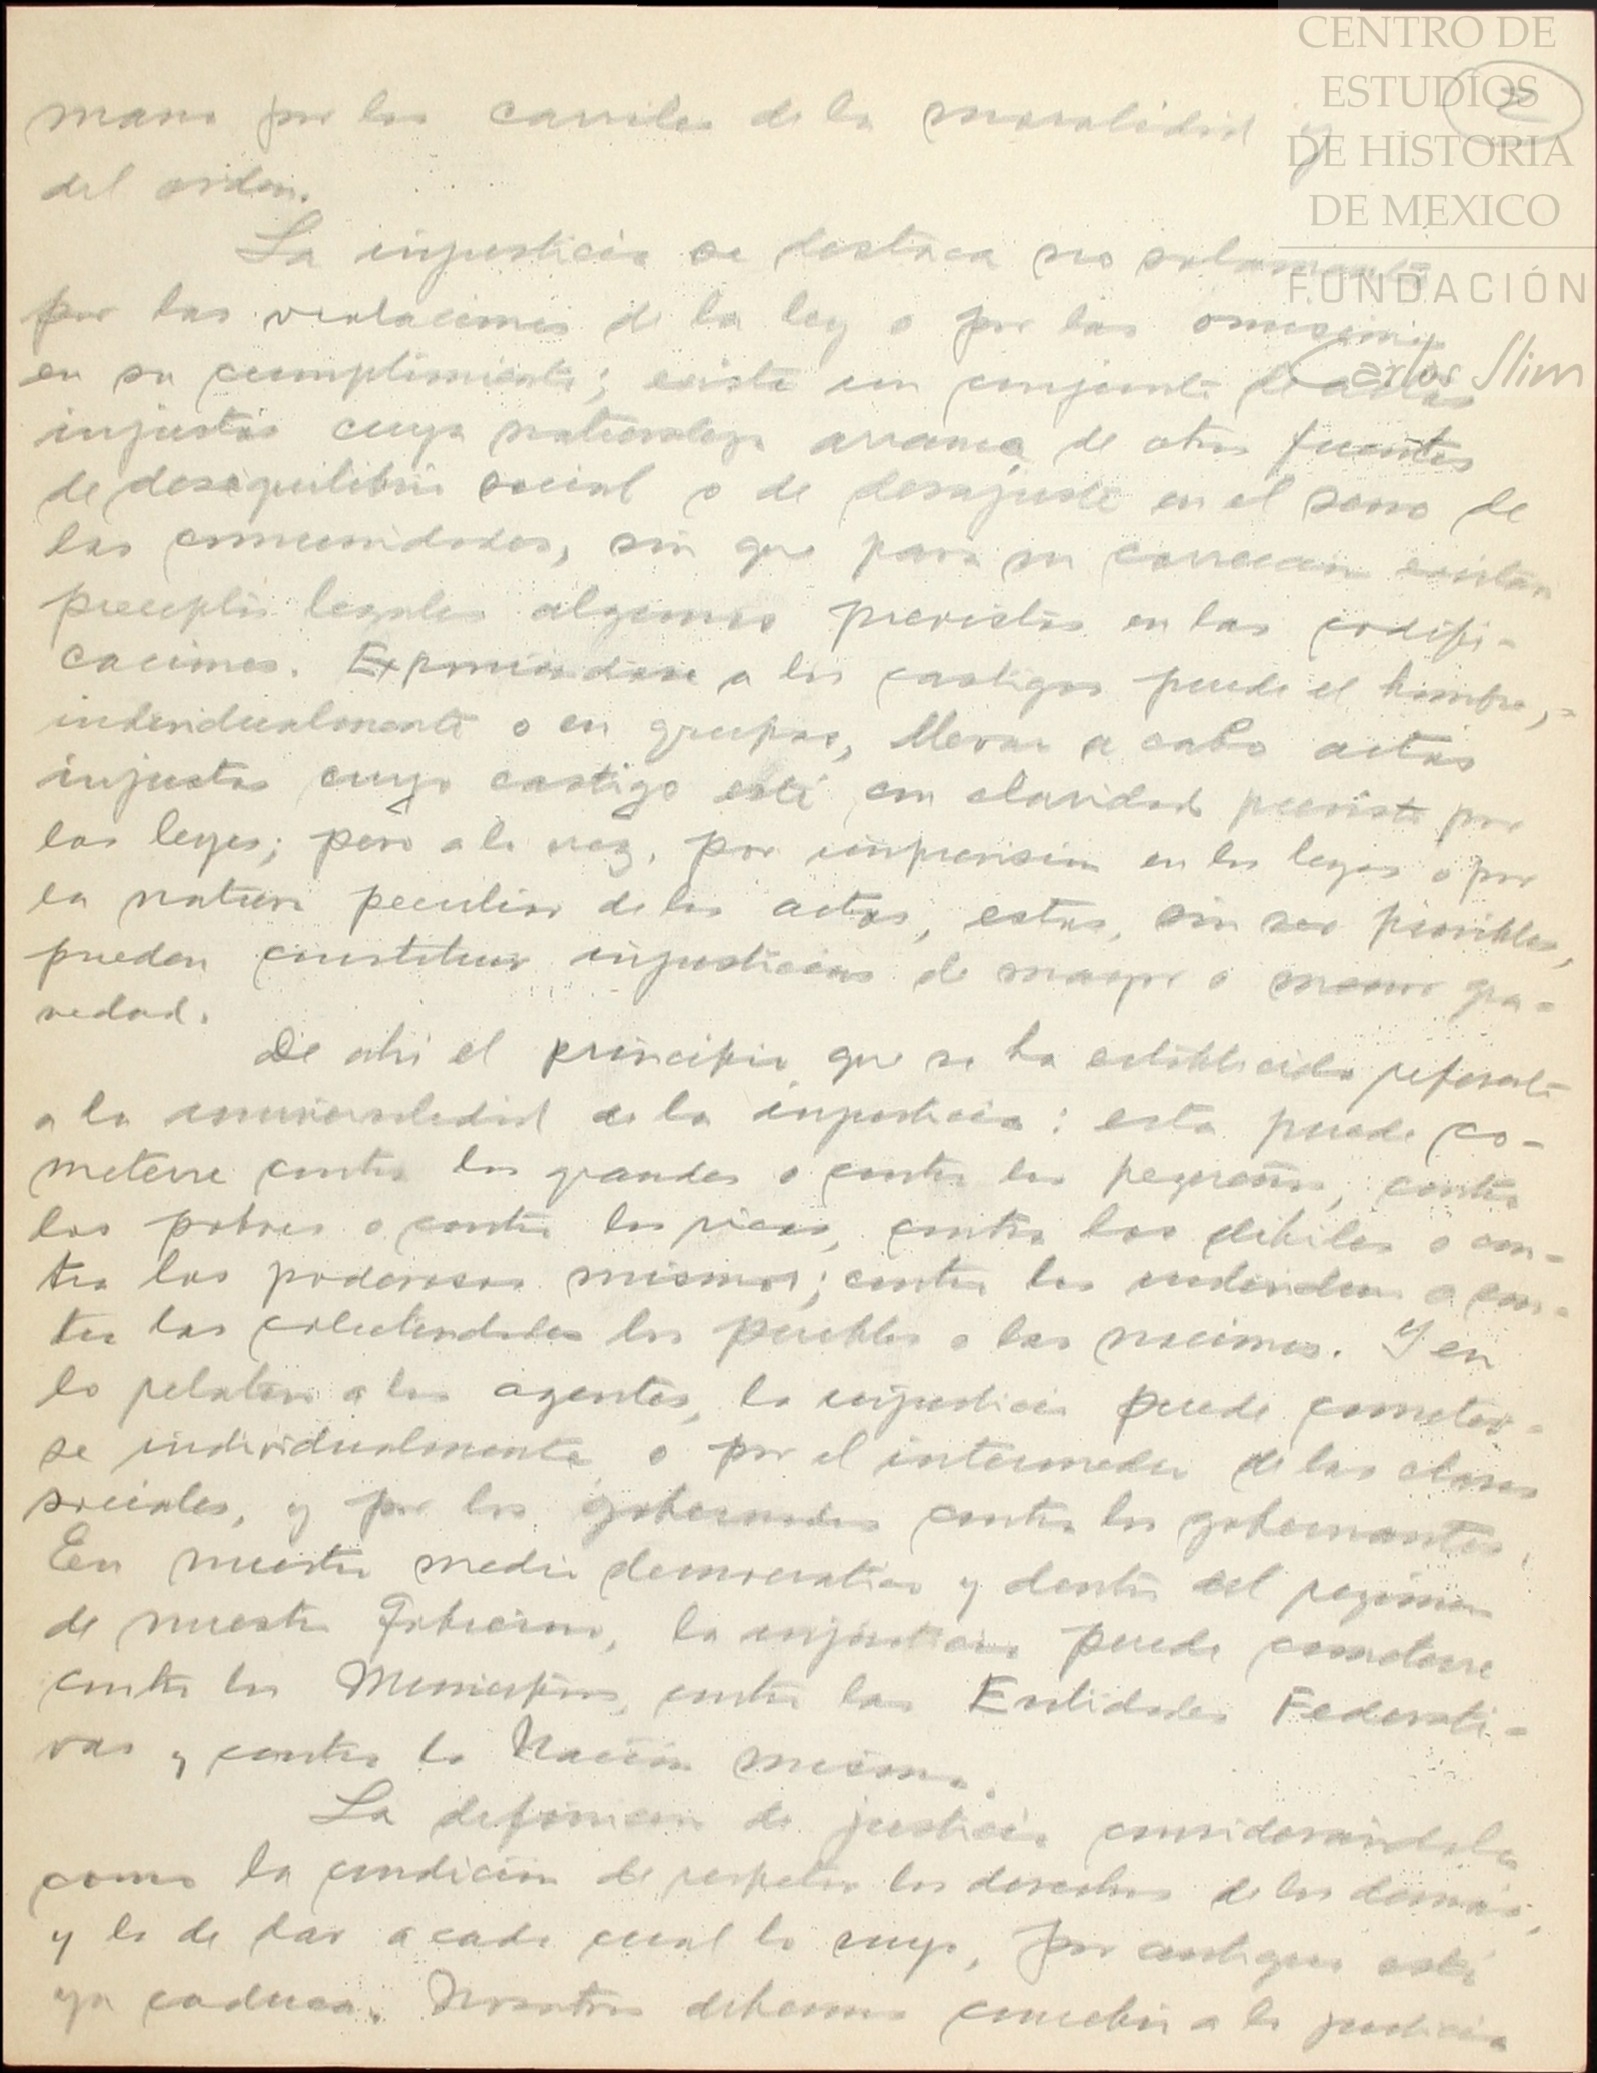 CENTRO DE
ESTUDIOS
DE HISTORIA
DE MEXICO
FUNDACIÓN
Carlos Slim
2
mano por los carriles de la moralidad y
del orden.
La injusticia se destaca no solamente
por las violaciones de la ley o por las omisiones
en su cumplimiento; existe un conjunto de actos
injustos cuya naturaleza arranca de otras fuentes
de desequilibrio social o de desajuste en el seno de
las comunidades, sin que para su correccion existan
preceptos legales algunos previstos en las codifi-
caciones. Exponiendose a los castigos puede el hombre,
individualmente o en grupos, llevar a cabo actos
injustos cuyo castigo esté con claridad previsto por
las leyes; pero a la vez, por imprevision en las leyes o por
la natura peculiar de los actos, estos, sin ser punibles,
pueden constituir injusticias de mayor o menor gra-
vedad.
De ahi el principio que se ha establecido referente
a la universalidad de la injusticia: esta puede co-
meterse contra los grandes o contra los pequeños, contra
los pobres o contra los ricos, contra los debiles o con-
tra los poderosos mismos; contra los individuos o con-
tra las colectividades los pueblos o las naciones. Y en
lo relativo a los agentes, la injusticia puede cometer-
se individualmente o por el intermedio de las clases
sociales, y por los gobernados contra los gobernantes.
En nuestro medio democratico y dentro del regimen
de nuestro Gobierno, la injusticia puede cometerse
contra los Municipios, contra las Entidades Federati-
vas y contra la Nación misma.
La definicion de justicia considerándola
como la condición de respetar los derechos de los demás,
y la de dar a cada cual lo suyo, por antigua está
ya caduca. Nosotros debemos concebir a la justicia